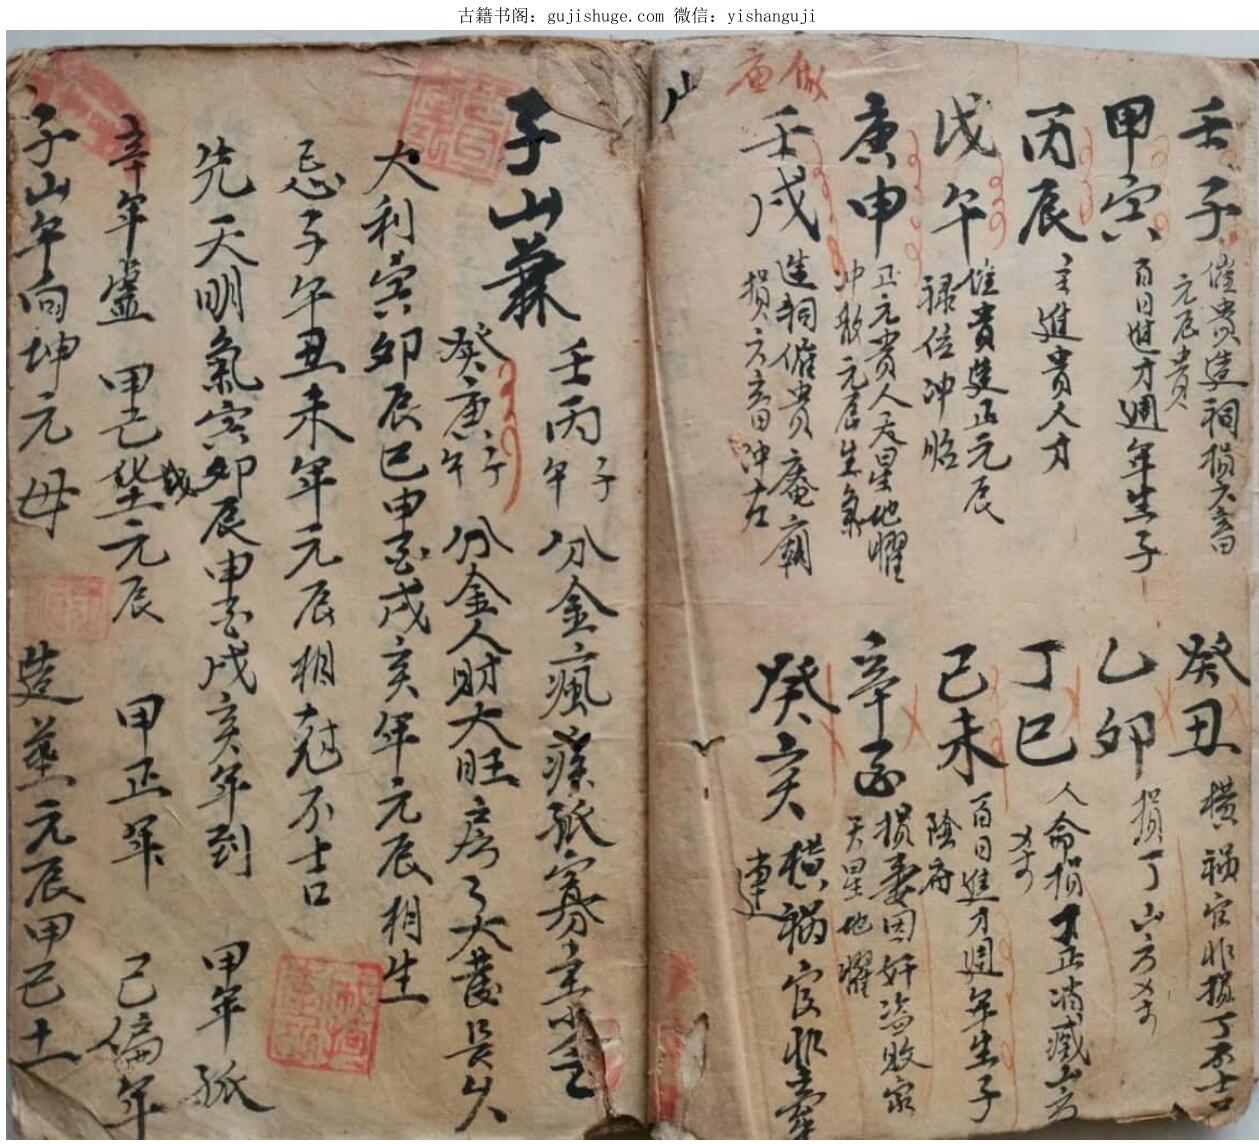 古籍书阁：gujishuge.com 微信：yishanguji
壬子 催貴造祠損六畜
元辰貴
癸丑 橫禍官非損丁不吉
甲寅 百日進才週年生子
乙卯 損丁山方
丙辰 主進貴人才
丁巳 人命損丁正消滅山方
戊午 催貴造正元辰
禄位冲照
己未 百日進才週年生子
陰府
庚申 正元貴人天星地曜
冲敗元辰生氣
辛酉 損妻因奸盗敗家
天星地曜
壬戌 造祠催貴庵廟
損六畜冲左
癸亥 橫禍官非
連
山
子山兼
壬丙子午分金瘋痰孤寡主
癸庚子午分金人財大旺房々大發長久
大利寅卯辰巳申酉戌亥年元辰相生
忌子午丑未年元辰相尅不吉
先天明氣寅卯辰申酉戌亥年到 甲年孤
辛年虛 甲己 元辰 甲正年 己偏年
子山午向坤元母 造墓元辰甲己土